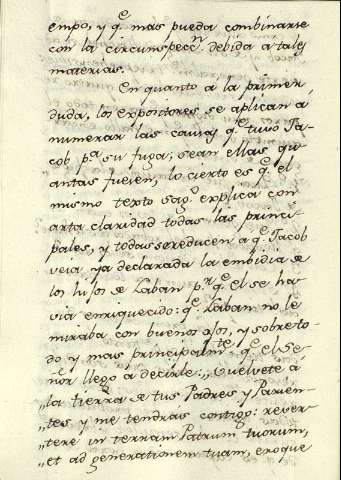 empo, y q.e mas pueda combinarse
con la circunspecc.n debida á tales
materias.
En quanto a la primer
duda, los expositores se aplican á
numerar las causas q.e tuvo Ja-
cob p.a su fuga; sean ellas qu-
antas fueren, lo cierto es q.e el
mismo texto sag.o explica con
arta claridad todas las princi-
pales, y todas se reducen a q.e Jacob
veia ya declarada la embidia de
los hijos de Laban p.r q.e el se ha-
via enriquecido: q.e Laban no le
miraba con buenos ojos, y sobreto-
do y mas principalm.te q.e el Se-
ñor llegó a decirle: „Vuelvete á
„la tierra de tus Padres y Parien-
„tes y me tendras contigo: rever-
„tere in terram Patrum tuorum,
„et ad generationem tuam, eroque